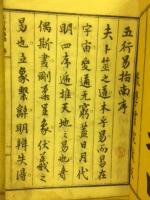 五行易指南序
夫卜筮之道本乎易而易在
宇宙變通無窮蓋日月代
明四序遞推天地之易也奇
偶斯畫剛柔呈象伏羲之
易也立象繫辭明辯失得